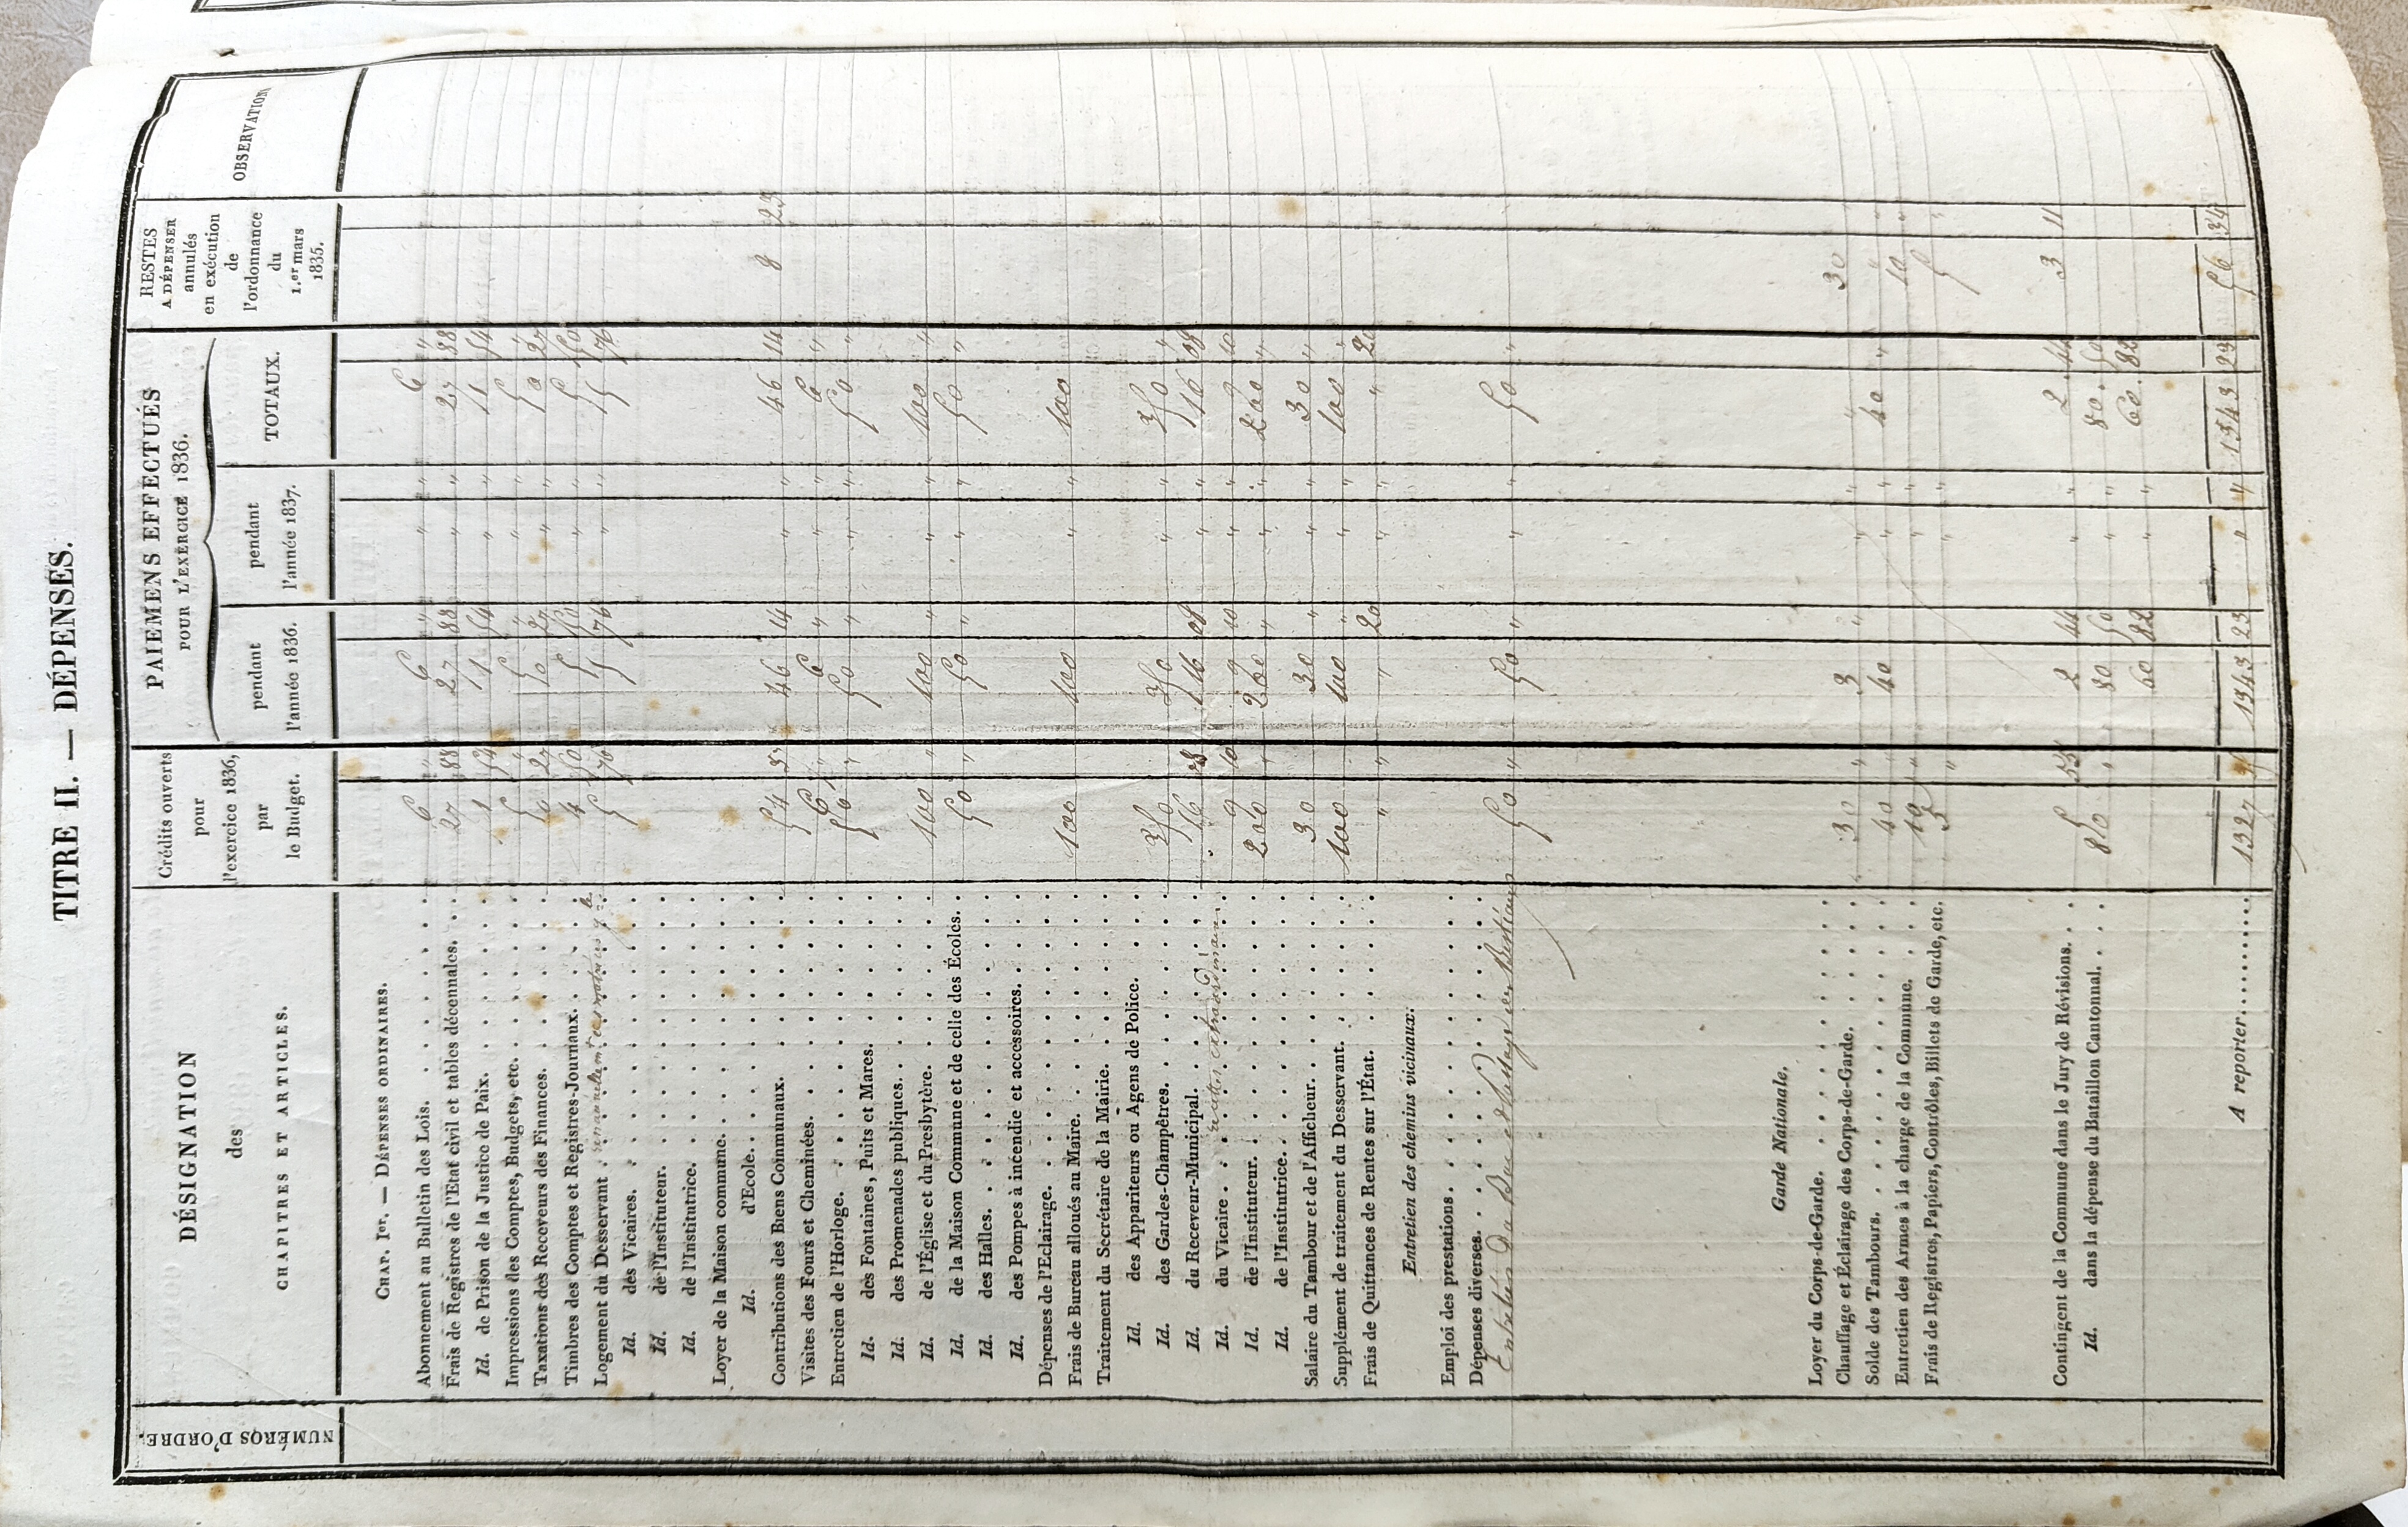 TITRE II. — DÉPENSES.
NUMÉROS D'ORDRE.
DÉSIGNATION
des
CHAPITRES ET ARTICLES.
Crédits ouverts
pour
l'exercice 1836,
par
le Budget.
PAIEMENS EFFECTUÉS
POUR L'EXERCICE 1836.
pendant
l'année 1836.
pendant
l'année 1837.
TOTAUX.
RESTES
A DÉPENSER
annulés
en exécution
de
l'ordonnance
du
1.er mars
1835.
OBSERVATION
CHAP. Ier. — DÉPENSES ORDINAIRES.
Abonnement au Bulletin des Lois. 6 " 6 " " " 6 "
Frais de Registres de l'Etat civil et tables décennales. 27 88 27 88 " " 27 88
Id. de Prison de la Justice de Paix. 1 54 1 54 " " 1 54
Impressions des Comptes, Budgets, etc. 5 " 5 " " " 5 "
Taxations des Receveurs des Finances. 50 27 50 27 " " 50 27
Timbres des Comptes et Registres-Journaux. 4 50 5 50 " " 5 50
Logement du Desservant 5 76 5 76 " " 5 76
Id. des Vicaires.
Id. de l'Instituteur.
Id. de l'Institutrice.
Loyer de la Maison commune.
Id. d'Ecole.
Contributions des Biens Communaux. 54 37 46 14 " " 46 14 8 23
Visites des Fours et Cheminées. 6 " 6 " " " 6 "
Entretien de l'Horloge. 50 " 50 " " " 50 "
Id. des Fontaines, Puits et Mares.
Id. des Promenades publiques.
Id. de l'Église et du Presbytère. 100 " 100 " " " 100 "
Id. de la Maison Commune et de celle des Écoles. 50 " 50 " " " 50 "
Id. des Halles.
Id. des Pompes à incendie et accessoires.
Dépenses de l'Eclairage.
Frais de Bureau alloués au Maire. 100 100 " " 100
Traitement du Secrétaire de la Mairie.
Id. des Appariteurs ou Agens de Police.
Id. des Gardes-Champêtres. 350 350 " " 350 "
Id. du Receveur-Municipal. 116 08 " " 116 08
Id. du Vicaire recettes extraordinaires 9 10 9 10 " " 9 10
Id. de l'Instituteur. 200 " 200 " " " 200 "
Id. de l'Institutrice.
Salaire du Tambour et de l'Afficheur. 30 30 " " " 30 "
Supplément de traitement du Desservant. 100 " 100 " " " 100 "
Frais de Quittances de Rentes sur l'État. " " " 20 " " " 20
Entretien des chemins vicinaux:
Emploi des prestations
Dépenses diverses.
Entretien Du 50 " 50 " " " 50 "
Garde Nationale.
Loyer du Corps-de-Garde.
Chauffage et Éclairage des Corps-de-Garde. 30 " " " 30
Solde des Tambours. 40 40 " " 40 "
Entretien des Armes à la charge de la Commune. 10 " " " 10
Frais de Registres, Papiers, Contrôles, Billets de Garde, etc. 5 " " " 5
Contingent de la Commune dans le Jury de Révisions. 5 55 2 44 " " 2 44 3 11
Id. dans la dépense du Bataillon Cantonnal. 80 80 50 " " 80 50
60 82 " " 60 82
A reporter 1327 1343 23 " " 1343 23 56 34